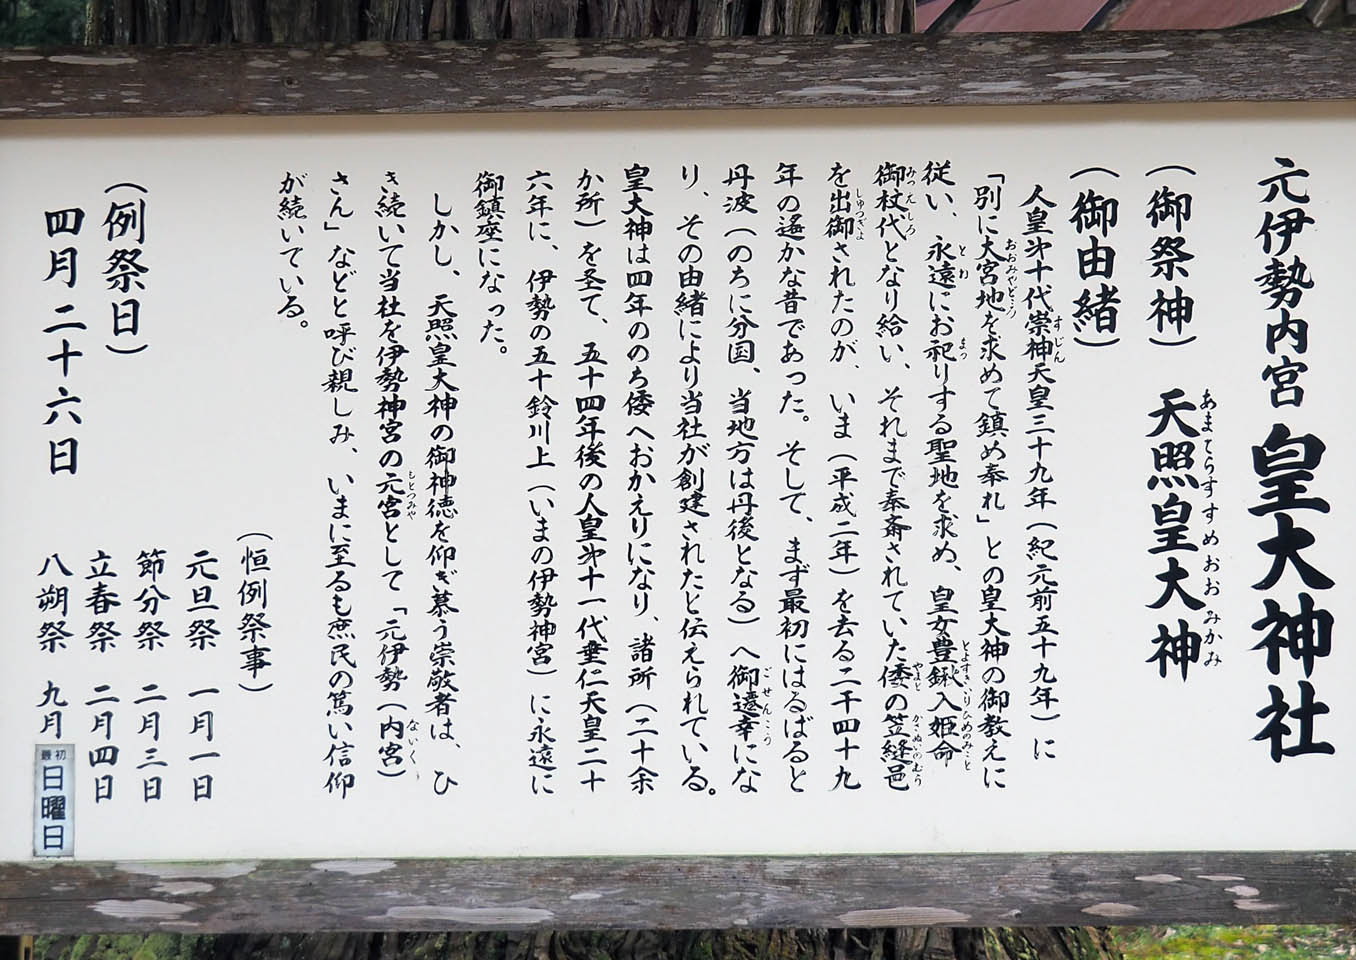 元伊勢内宮 皇大神社
(御祭神) 天照皇大神
あまてらすすめおおみかみ
(御由緒)
人皇第十代崇神天皇三十九年(紀元前五十九年)に
すじん
「別に大宮地を求めて鎮め奉れ」との皇大神の御教えに
おおみやどころ
従い、永遠にお祀りする聖地を求め、皇女豊鍬入姫命
とわ まつ とよすきいりひめのみこと
御杖代となり給い、それまで奉斎されていた倭の笠縫邑
みつえしろ やまと かさぬいのむら
を出御されたのが、いま(平成二年)を去る二千四十九
しゅつぎょ
年の遙かな昔であった。そして、まず最初にはるばると
丹波(のちに分国、当地方は丹後となる)へ御遷幸にな
ごせんこう
り、その由緒により当社が創建されたと伝えられている。
皇大神は四年ののち倭へおかえりになり、諸所(二十余
か所)を圣て、五十四年後の人皇第十一代垂仁天皇二十
六年に、伊勢の五十鈴川上(いまの伊勢神宮)に永遠に
御鎮座になった。
しかし、天照皇大神の御神徳を仰ぎ慕う崇敬者は、ひ
き続いて当社を伊勢神宮の元宮として「元伊勢(内宮)
もとつみや ないく
さん」などと呼び親しみ、いまに至るも庶民の篤い信仰
が続いている。
(恒例祭事)
元旦祭 一月一日
節分祭 二月三日
立春祭 二月四日
八朔祭 九月最初日曜日
(例祭日)
四月二十六日